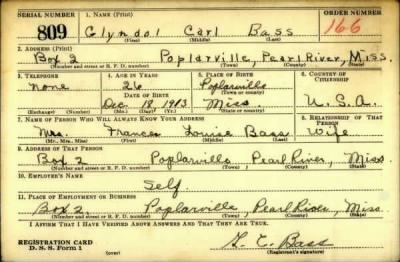 SERIAL NUMBER 1. NAME (Print) ORDER NUMBER
809 Glyndol Carl Bass 166
(First) (Middle) (Last)
2. ADDRESS (Print)
Box 2 Poplarville, Pearl River, Miss.
(Number and street or R. F. D. number) (Town) (County) (State)
3. TELEPHONE 4. AGE IN YEARS 5. PLACE OF BIRTH 6. COUNTRY OF CITIZENSHIP
none 26 Poplarville
DATE OF BIRTH (Town or county)
Dec. 18, 1913 Miss. U.S.A.
(Exchange) (Number) (Mo.) (Day) (Yr.) (State or country)
7. NAME OF PERSON WHO WILL ALWAYS KNOW YOUR ADDRESS 8. RELATIONSHIP OF THAT PERSON
Mrs. Frances Louise Bass Wife
(Mr., Mrs., Miss) (First) (Middle) (Last)
9. ADDRESS OF THAT PERSON
Box 2 Poplarville Pearl River, Miss.
(Number and street or R. F. D. number) (Town) (County) (State)
10. EMPLOYER'S NAME
Self.
11. PLACE OF EMPLOYMENT OR BUSINESS
Box 2. Poplarville, Pearl River, Miss.
(Number and street or R. F. D. number) (Town) (County) (State)
I AFFIRM THAT I HAVE VERIFIED ABOVE ANSWERS AND THAT THEY ARE TRUE.
REGISTRATION CARD
D. S. S. Form 1 (over) C. Bass
(Registrant's signature)